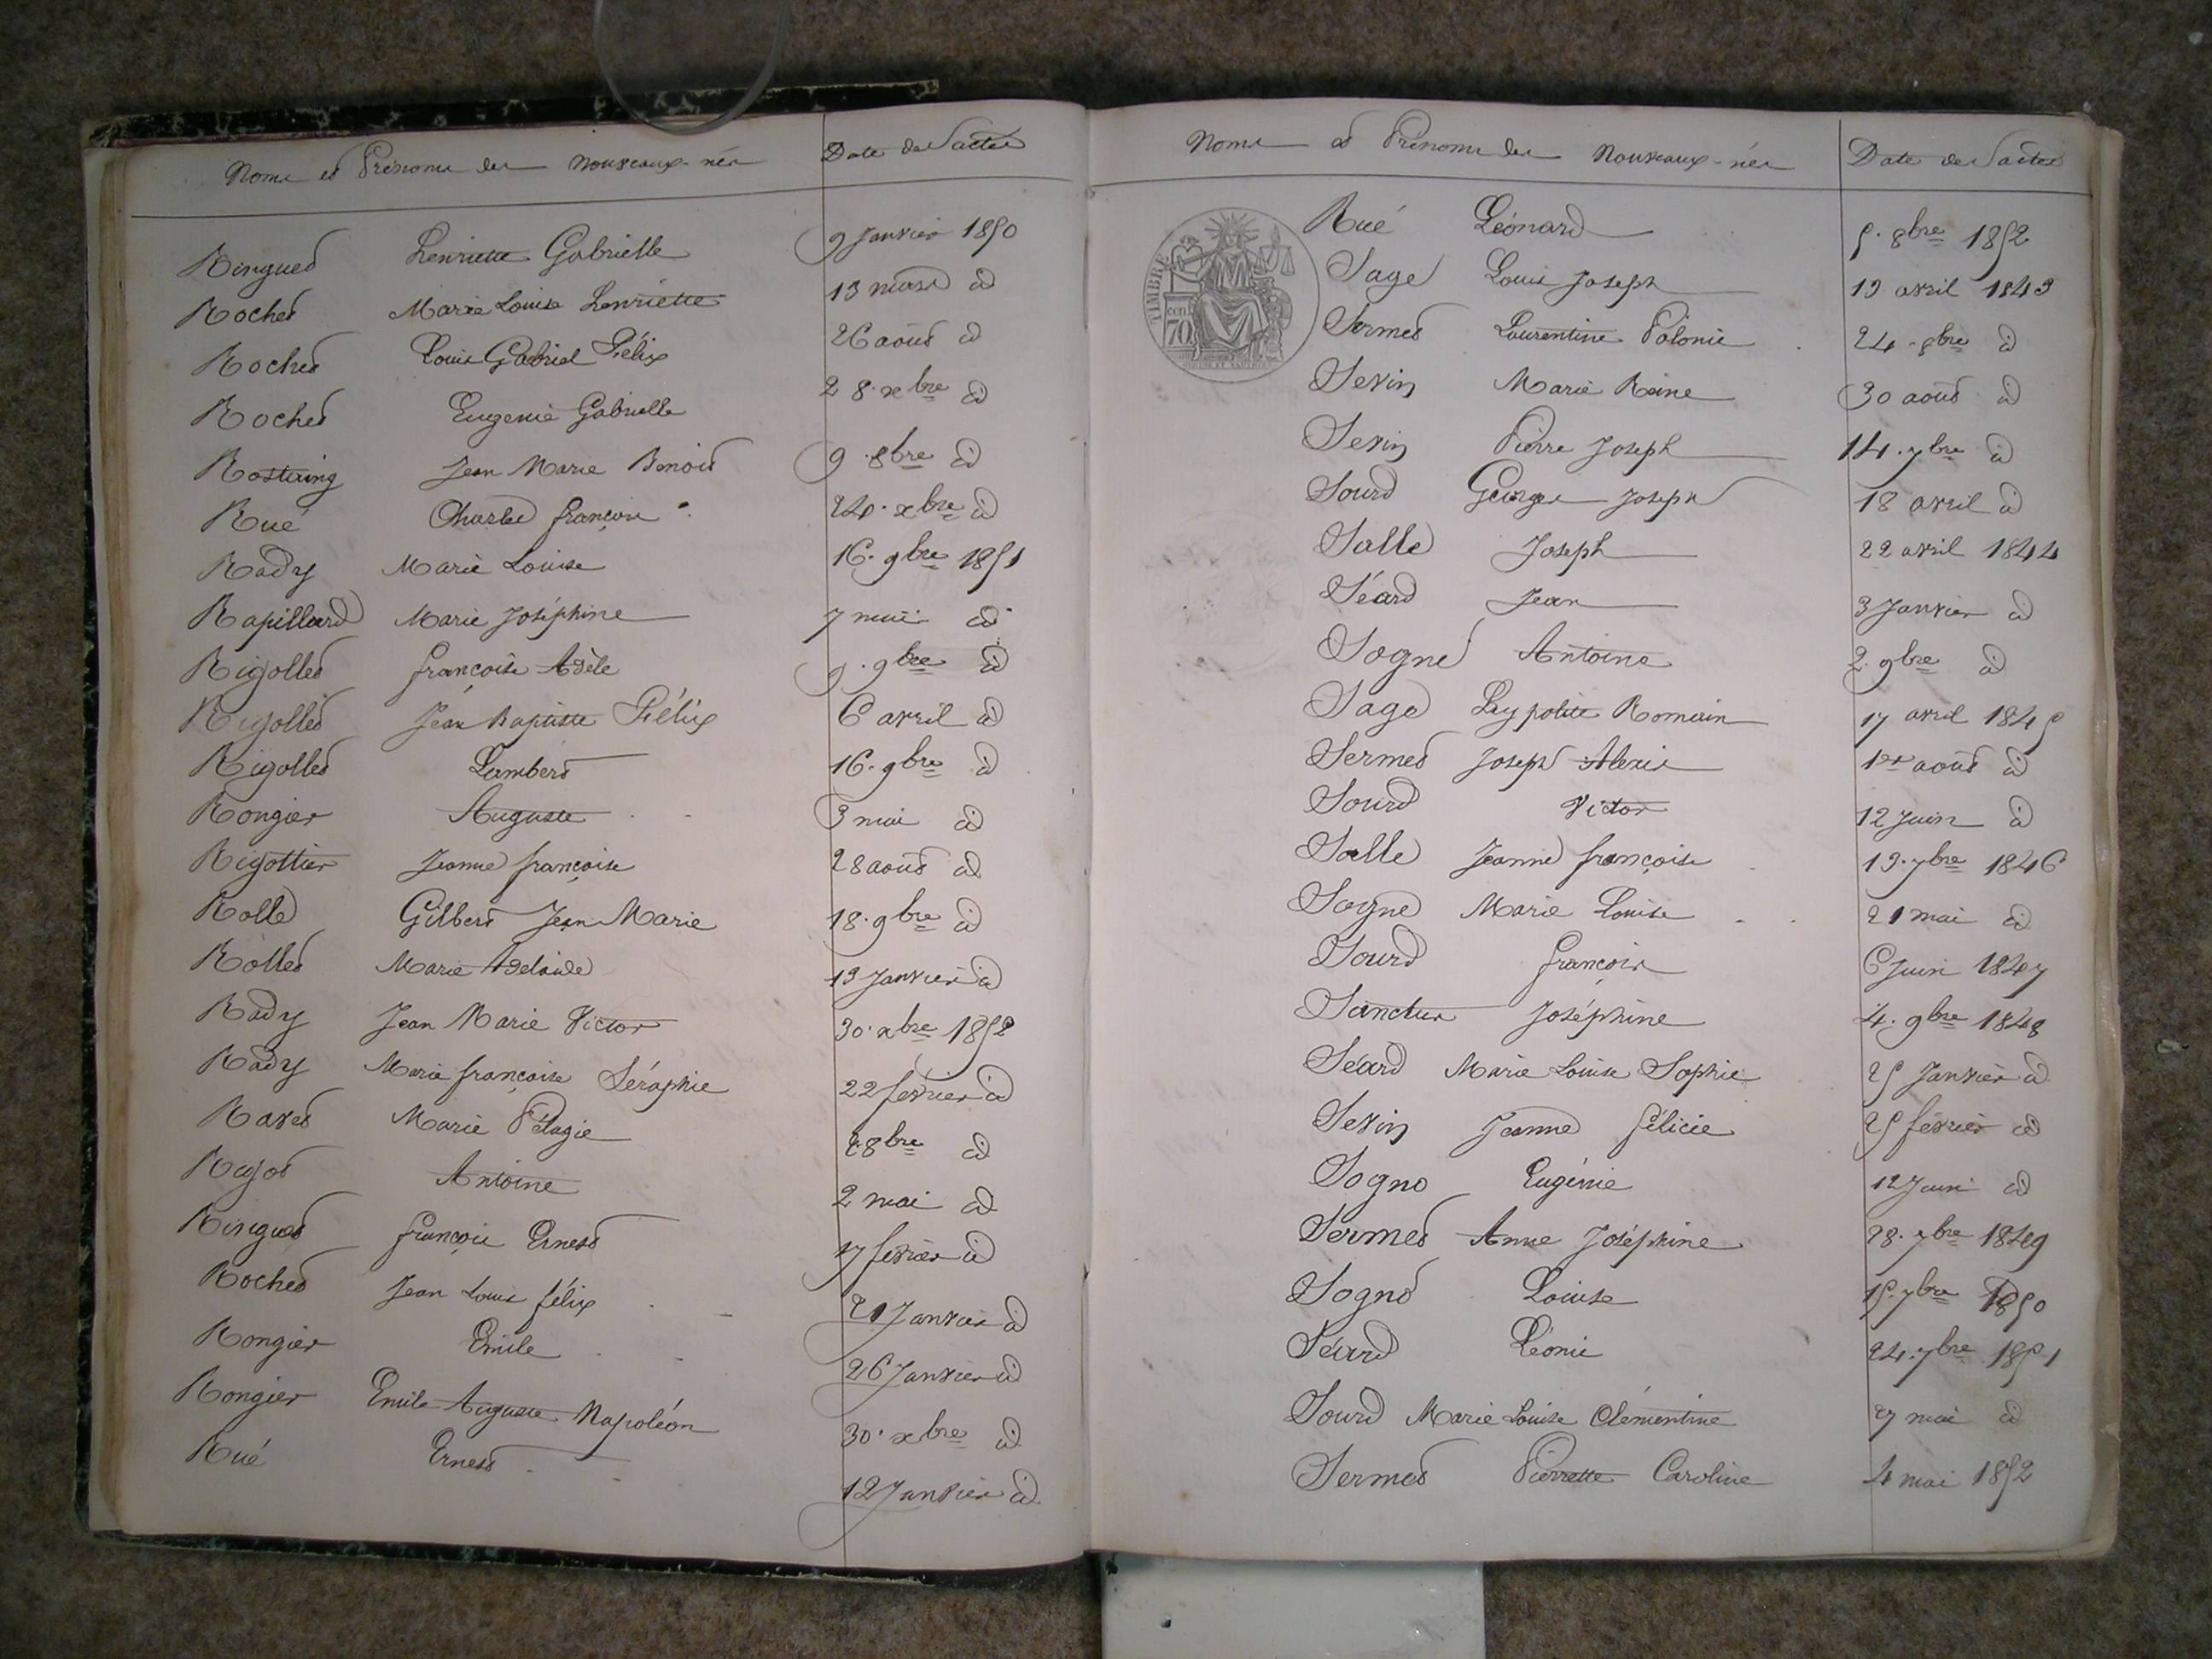 Noms et Prénoms des nouveaux-nés Date des actes
Ringuet Henriette Gabrielle 9 Janvier 1850
Rochet Marie Louise Henriette 13 mars id
Rochet Louis Gabriel Félix 26 août id
Rochet Eugenie Gabrielle 28 xbre id
Rostaing Jean Marie Benoit 9 8bre id
Rué Charles françois 24 xbre id
Rady Marie Louise 16 9bre 1851
Rapillard Marie Joséphine 7 mai id
Rigollet françoise Adèle 9 9bre id
Rigollet Jean Baptiste Félix 6 avril id
Rigollet Lambert 16 9bre id
Rongier Auguste 3 mai id
Rigottier Jeanne françoise 28 août id
Rolle Gilbert Jean Marie 18 9bre id
Rollet Marie Adelaïde 19 Janvier id
Rady Jean Marie Victor 30 xbre 1852
Rady Marie françoise Séraphie 22 février id
Ravet Marie Pélagie 2 8bre id
Rigot Antoine 2 mai id
Ringuet françois Ernest 17 février id
Rochet Jean Louis félix 21 Janvier id
Rongier Emile 26 Janvier id
Rongier Emile Auguste Napoléon 30 xbre id
Rué Ernest 12 Janvier id
Noms et Prénoms des Nouveaux-nés Date des actes
TIMBRE
70 cen
Rué Léonard 5 8bre 1852
Sage Louis Joseph 19 avril 1843
Sermet Laurentine Polonie 24 8bre id
Sevin Marie Reine 30 août id
Sevin Pierre Joseph 14 7bre id
Sourd Georges Joseph 18 avril id
Salle Joseph 22 avril 1844
Séard Jean 3 Janvier id
Sogne Antoine 2 9bre id
Sage Hypolite Romain 17 avril 1845
Sermet Joseph Alexis 1er août id
Sourd Victor 12 Juin id
Salle Jeanne françoise 19 7bre 1846
Sogne Marie Louise 21 mai id
Sourd françois 6 Juin 1847
Sanctus Joséphine 4 9bre 1848
Séard Marie Louise Sophie 25 Janvier id
Sevin Jeanne félicie 25 février id
Sogno Eugénie 12 Juin id
Sermet Anne Joséphine 28 7bre 1849
Sogno Louise 15 7bre 1850
Séard Léonie 24 7bre 1851
Sourd Marie Louise Clémentine 27 mai id
Sermet Pierrette Caroline 4 mai 1852